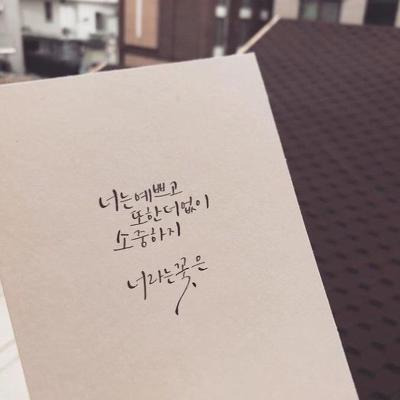 너는예쁘고
또한더없이
소중하지
너라는꽃은